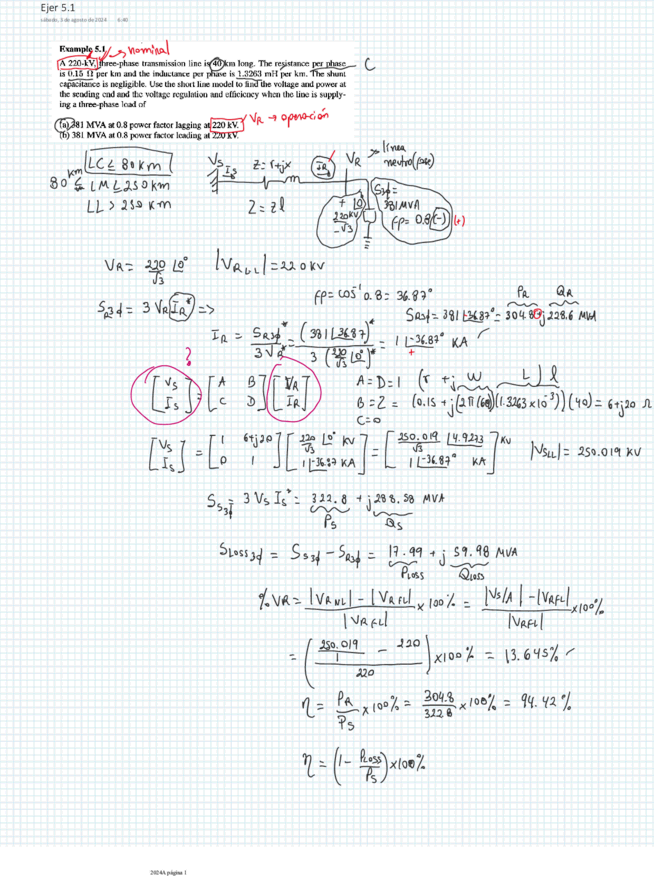 Ejer 5.1
sábado, 3 de agosto de 2024 6:40
Example 5.1 → nominal
A 220-kV, three-phase transmission line is 40 km long. The resistance per phase
is 0.15 Ω per km and the inductance per phase is 1.3263 mH per km. The shunt
capacitance is negligible. Use the short line model to find the voltage and power at
the sending end and the voltage regulation and efficiency when the line is supply-
ing a three-phase load of
C
(a) 381 MVA at 0.8 power factor lagging at 220 kV.
VR → operación
(b) 381 MVA at 0.8 power factor leading at 220 kV.
LC ≤ 80 km
80 km ≤ LM ≤ 250 km
LL > 250 km
Vs Is z = r+jx IR VR → línea neutro (fase)
Z = zl
+ 220 kV / √3 ⌊0° −
S3φ = 381 MVA
fp = 0.8 (−) (+)
VR = 220/√3 ⌊0° |VRLL| = 220 kV
fp = cos⁻¹ 0.8 = 36.87°
PR QR
SR3φ = 3 VR IR* => SR3φ = 381 ⌊36.87° = 304.8 + j 228.6 MVA
IR = SR3φ* / 3VR* = (381 ⌊36.87)* / 3 (220/√3 ⌊0°)* = 1 ⌊-36.87° KA
+
?
[Vs Is] = [A B C D] [VR IR] A = D = 1 (r + j w L) l
B = Z = (0.15 + j(2π(60)(1.3263×10⁻³))(40) = 6+j20 Ω
C = 0
[Vs Is] = [1 6+j20 0 1] [220/√3 ⌊0° kV 1⌊-36.87 KA] = [250.019/√3 ⌊4.9273 1⌊-36.87° KA] KV |VSLL| = 250.019 KV
Ss3φ = 3 Vs Is* = 322.8 + j 288.58 MVA
Ps Qs
SLoss3φ = Ss3φ − SR3φ = 17.99 + j 59.98 MVA
PLoss QLoss
% VR = |VRNL| − |VRFL| / |VRFL| × 100% = |Vs/A| − |VRFL| / |VRFL| × 100%
= (250.019/1 − 220 / 220) × 100% = 13.645%
η = PR/Ps × 100% = 304.8/322.8 × 100% = 94.42%
η = (1 − PLoss/Ps) × 100%
2024A página 1